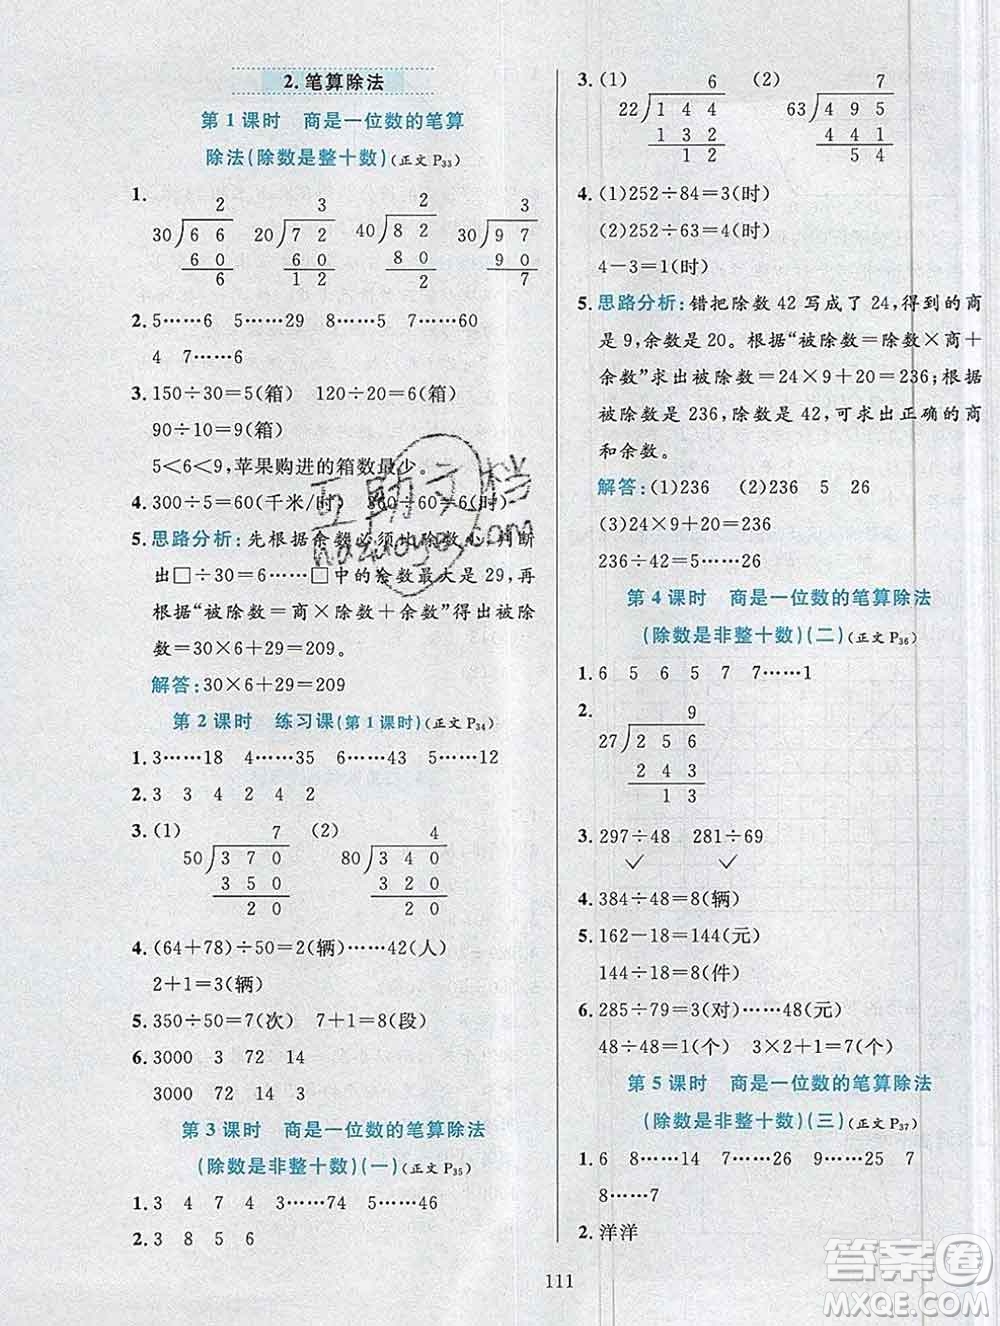 2. 笔算除法
第1课时 商是一位数的笔算
除法(除数是整十数)(正文P33)
1.
2 3 2 3
30 6 6 20 7 2 40 8 2 30 9 7
6 0 6 0 8 0 9 0
6 1 2 2 7
2. 5……6 5……29 8……4 7……60
4 7……6
3. 150÷30=5(箱) 120÷20=6(箱)
90÷10=9(箱)
5<6<9,苹果购进的箱数最少。
4. 300÷5=60(千米/时) 360÷60=6(时)
5. 思路分析:先根据余数必须比除数小,判断
出□÷30=6……□中的余数最大是29,再
根据“被除数=商×除数+余数”得出被除
数=30×6+29=209。
解答:30×6+29=209
第2课时 练习课(第1课时)(正文P34)
1. 3……18 4……35 6……43 5……12
2. 3 3 4 2 4 2
3. (1) 7 (2) 4
50 3 7 0 80 3 4 0
3 5 0 3 2 0
2 0 2 0
4. (64+78)÷50=2(辆)……42(人)
2+1=3(辆)
5. 350÷50=7(次) 7+1=8(段)
6. 3000 3 72 14
3000 72 14 3
第3课时 商是一位数的笔算除法
(除数是非整十数)(一)(正文P35)
1. 3 4 7 4 3……4 5……46
2. 3 8 5 6
3. (1) 6 (2) 7
22 1 4 4 63 4 9 5
1 3 2 4 4 1
1 2 5 4
4. (1)252÷84=3(时)
(2)252÷63=4(时)
4-3=1(时)
5. 思路分析:错把除数42写成了24,得到的商
是9,余数是20。根据“被除数=除数×商+
余数”求出被除数=24×9+20=236;根据
被除数是236,除数是42,可求出正确的商
和余数。
解答:(1)236 (2)236 5 26
(3)24×9+20=236
236÷42=5……26
第4课时 商是一位数的笔算除法
(除数是非整十数)(二)(正文P36)
1. 6 5 6 5 7 7……1
2. 9
27 2 5 6
2 4 3
1 3
3. 297÷48 281÷69
✓ ✓
4. 384÷48=8(辆)
5. 162-18=144(元)
144÷18=8(件)
6. 285÷79=3(对)……48(元)
48÷48=1(个) 3×2+1=7(个)
第5课时 商是一位数的笔算除法
(除数是非整十数)(三)(正文P37)
1. 6 8……14 7……27 9……25 7
8……7
2. 洋洋
111
互助文档
hazuoya.com
答案圈
MXQE.COM